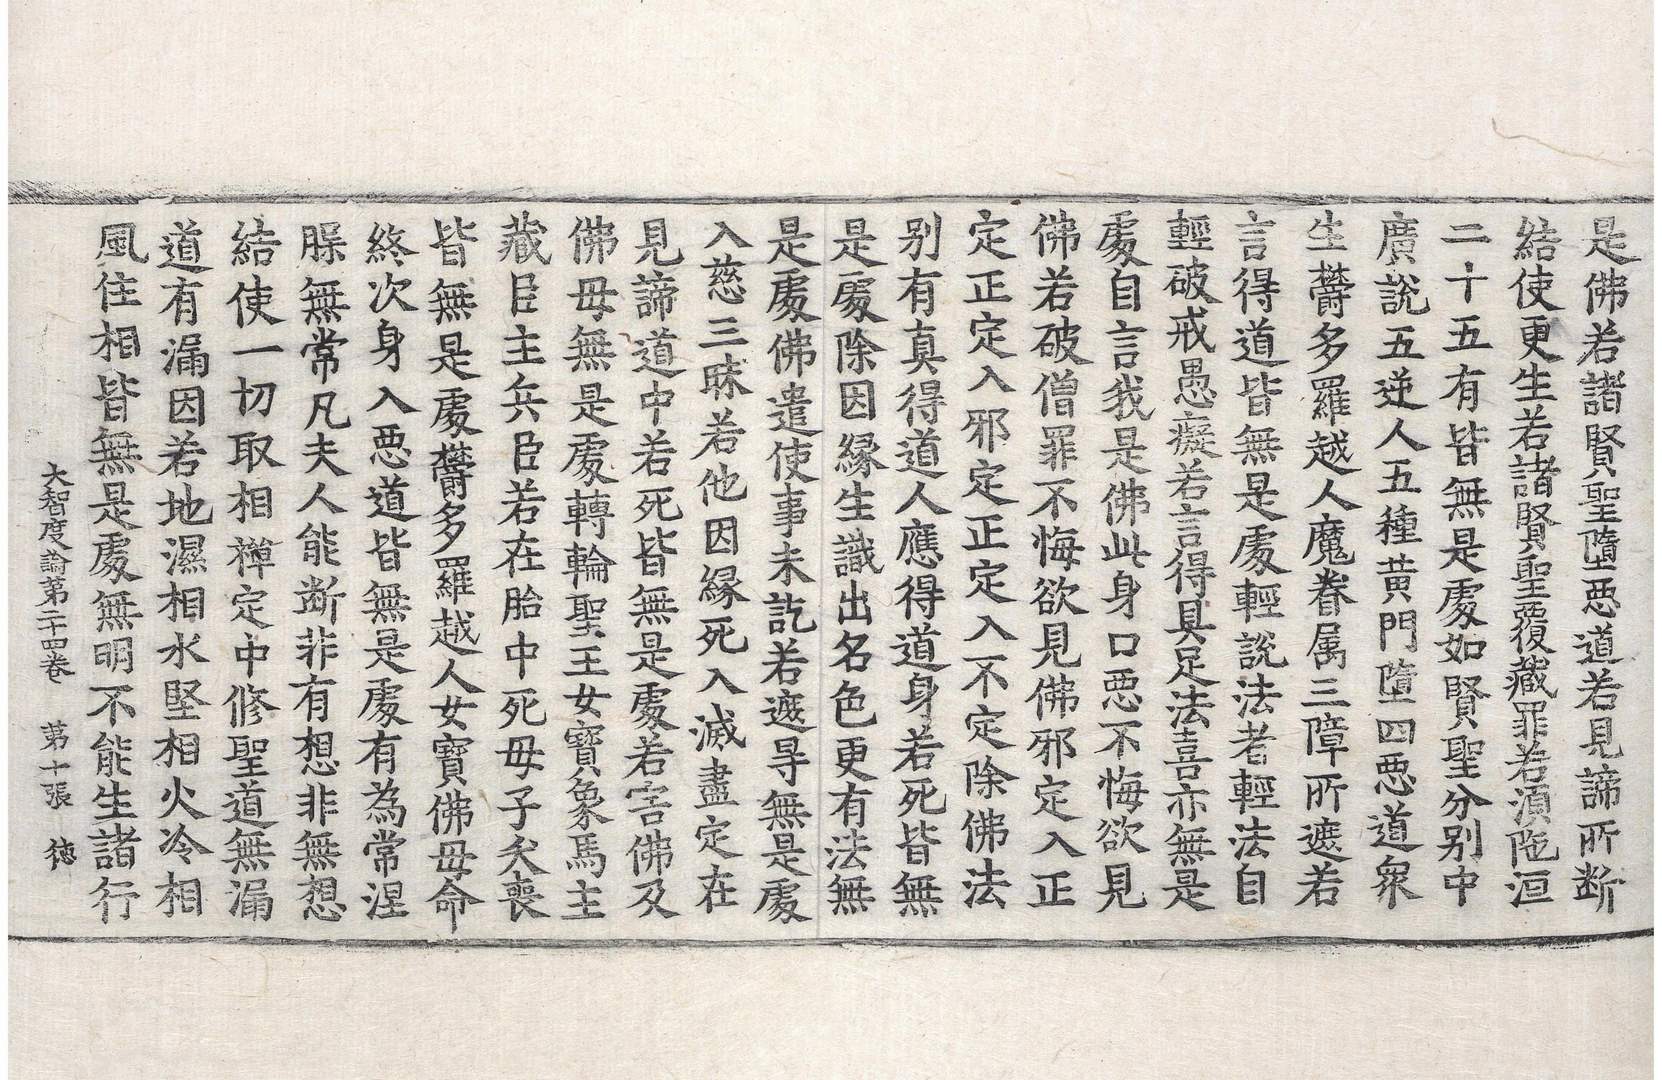 是佛若諸賢聖墮惡道若見諦所断
結使更生若諸賢聖覆藏罪若湏陁洹
二十五有皆無是處如賢聖分别中
廣說五逆人五種黄門墮四惡道衆
生欝多羅越人魔眷属三障所遮若
言得道皆無是處輕說法者輕法自
輕破戒愚癡若言得具足法喜亦無是
處自言我是佛此身口惡不悔欲見
佛若破僧罪不悔欲見佛邪定入正
定正定入邪定正定入不定除佛法
别有真得道人應得道身若死皆無
是處除因緣生識出名色更有法無
是處佛遣使事未訖若遮㝵無是處
入慈三昧若他因緣死入滅盡定在
見諦道中若死皆無是處若害佛及
佛母無是處轉輪聖王女寶象馬主
藏臣主兵臣若在胎中死母子夭喪
皆無是處欝多羅越人女寶佛母命
終次身入惡道皆無是處有為常涅
槃無常凡夫人能断非有想非無想
結使一切取相禪定中修聖道無漏
道有漏因若地濕相水堅相火冷相
風住相皆無是處無明不能生諸行
大智度論第二十四卷 第十張 德